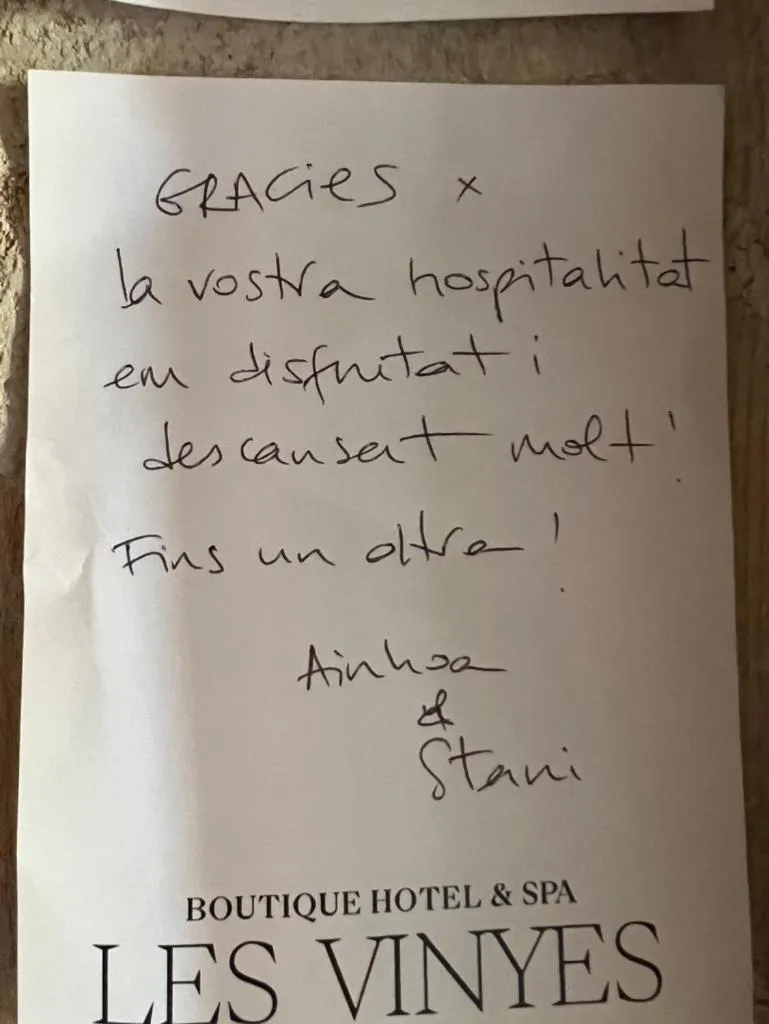 GRACIES x
la vostra hospitalitat
em disfrutat i
descansat molt!
Fins un altre!
Ainhoa
&
Stani
BOUTIQUE HOTEL & SPA
LES VINYES